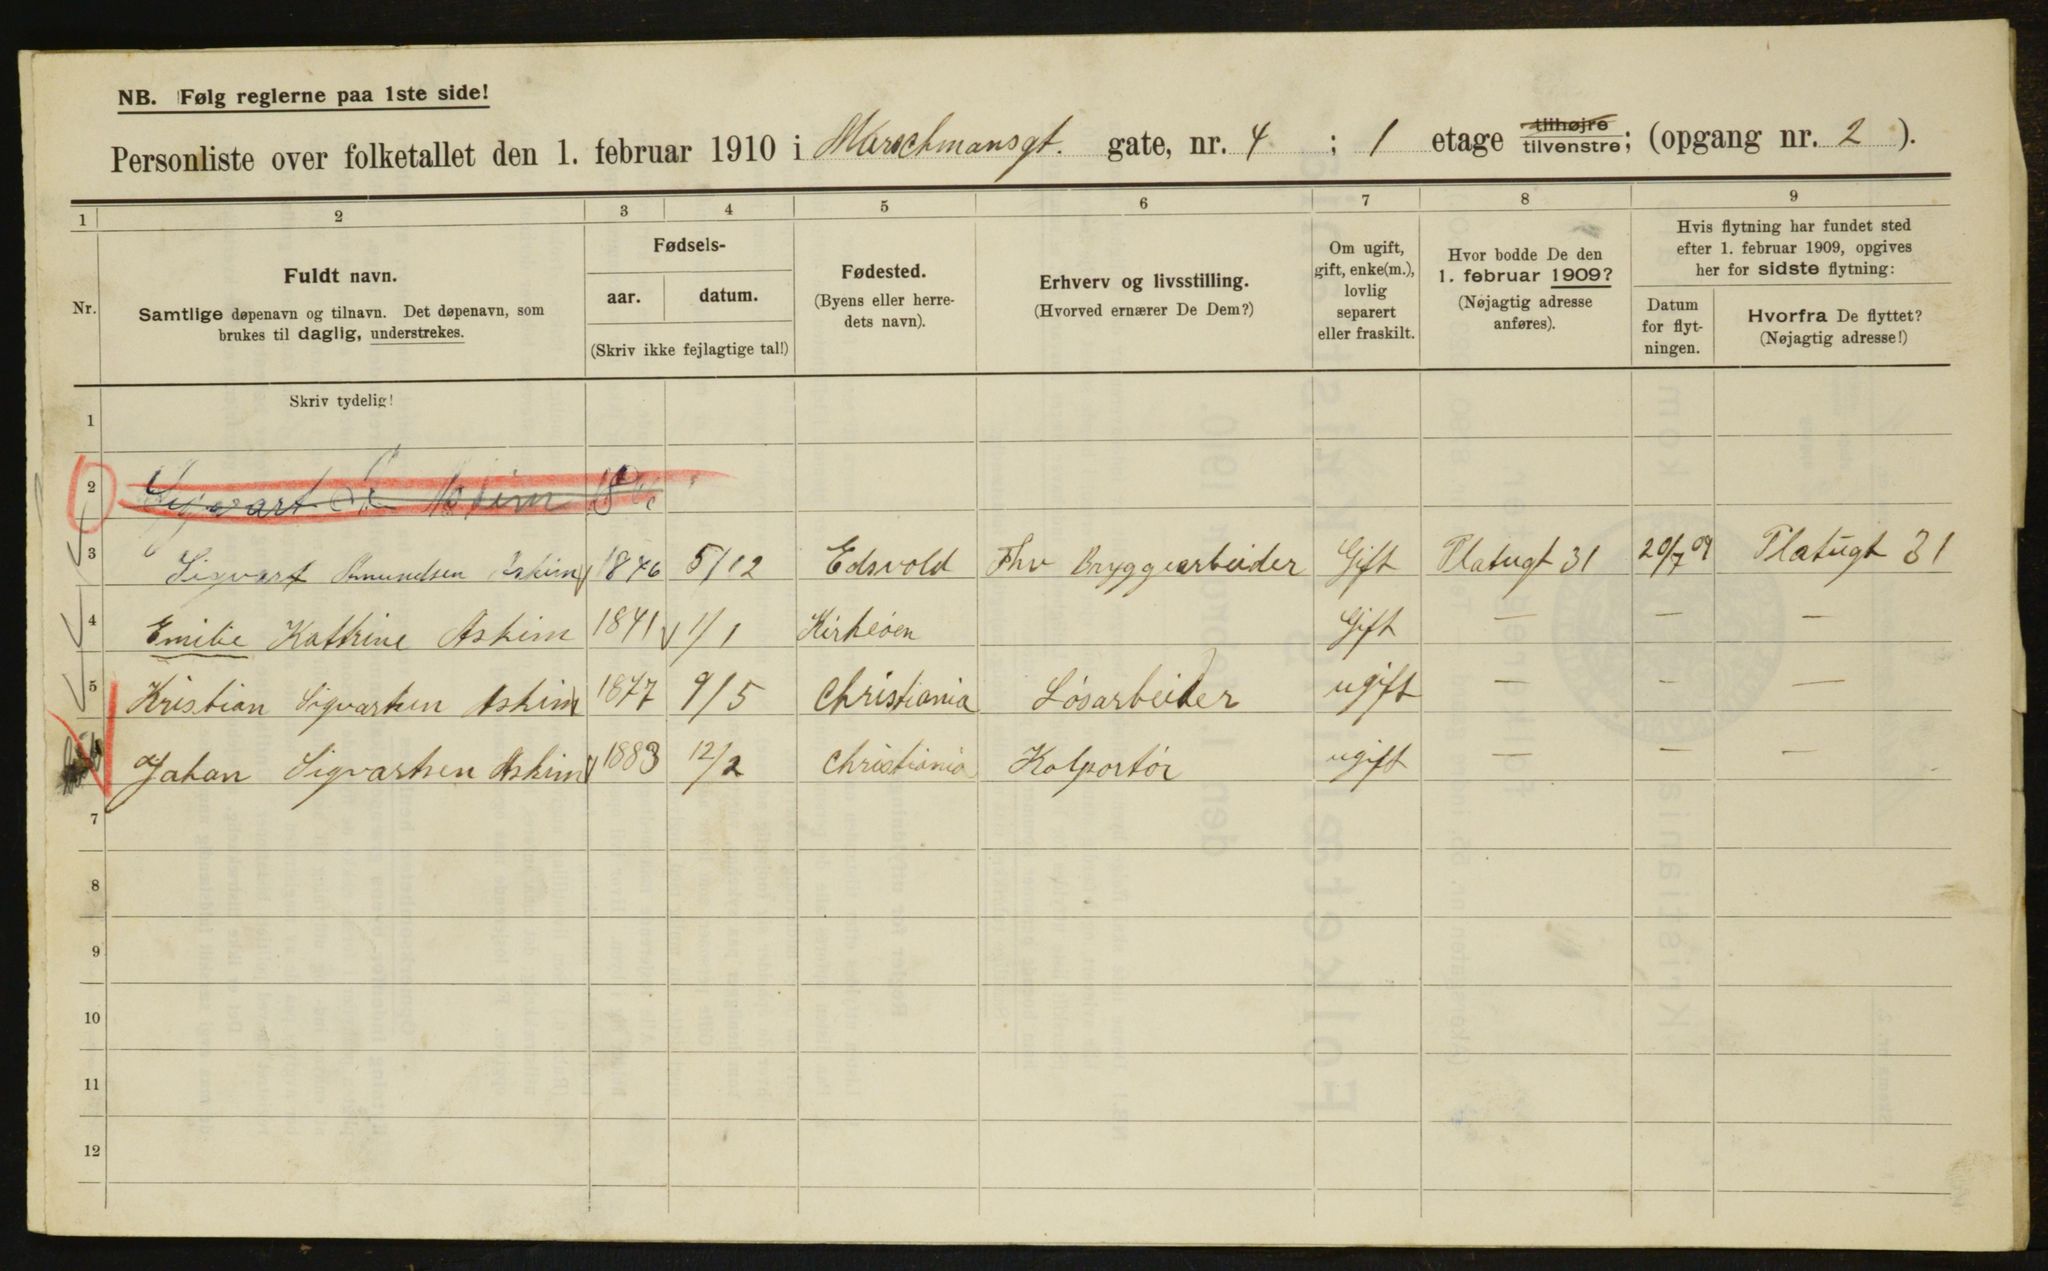 NB. Følg reglerne paa 1ste side!
Personliste over folketallet den 1. februar 1910 i Marschmansgt. gate, nr. 4 ; 1 etage tilhøjre tilvenstre; (opgang nr. 2 ).
1 2 3 4 5 6 7 8 9
Nr.
Fuldt navn.
Samtlige døpenavn og tilnavn. Det døpenavn, som
brukes til daglig, understrekes.
Fødsels-
aar. datum.
(Skriv ikke fejlagtige tal!)
Fødested.
(Byens eller herre-
dets navn).
Erhverv og livsstilling.
(Hvorved ernærer De Dem?)
Om ugift,
gift, enke(m.),
lovlig
separert
eller fraskilt.
Hvor bodde De den
1. februar 1909?
(Nøjagtig adresse
anføres).
Hvis flytning har fundet sted
efter 1. februar 1909, opgives
her for sidste flytning:
Datum
for flyt-
ningen.
Hvorfra De flyttet?
(Nøjagtig adresse!)
Skriv tydelig!
1
2 Sigvart Askim
3 Sigvart Amundsen Askim 1846 5/12 Edsvold Fhv Bryggearbeider Gift Platugt 31 20/7 09 Platugt 31
4 Emilie Kathrine Askim 1841 1/1 Kirkeøen Gift — — —
5 Kristian Sigvartsen Askim 1877 9/5 Christiania Løsarbeider ugift — — —
Johan Sigvartsen Askim 1883 12/2 Christiania Kolportør ugift — — —
7
8
9
10
11
12